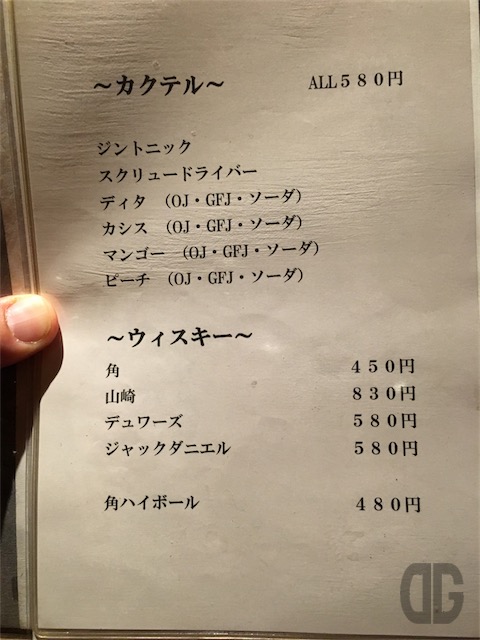 ～カクテル～ ALL５８０円
ジントニック
スクリュードライバー
ディタ （OJ・GFJ・ソーダ）
カシス （OJ・GFJ・ソーダ）
マンゴー （OJ・GFJ・ソーダ）
ピーチ （OJ・GFJ・ソーダ）
～ウィスキー～
角 ４５０円
山崎 ８３０円
デュワーズ ５８０円
ジャックダニエル ５８０円
角ハイボール ４８０円
DG